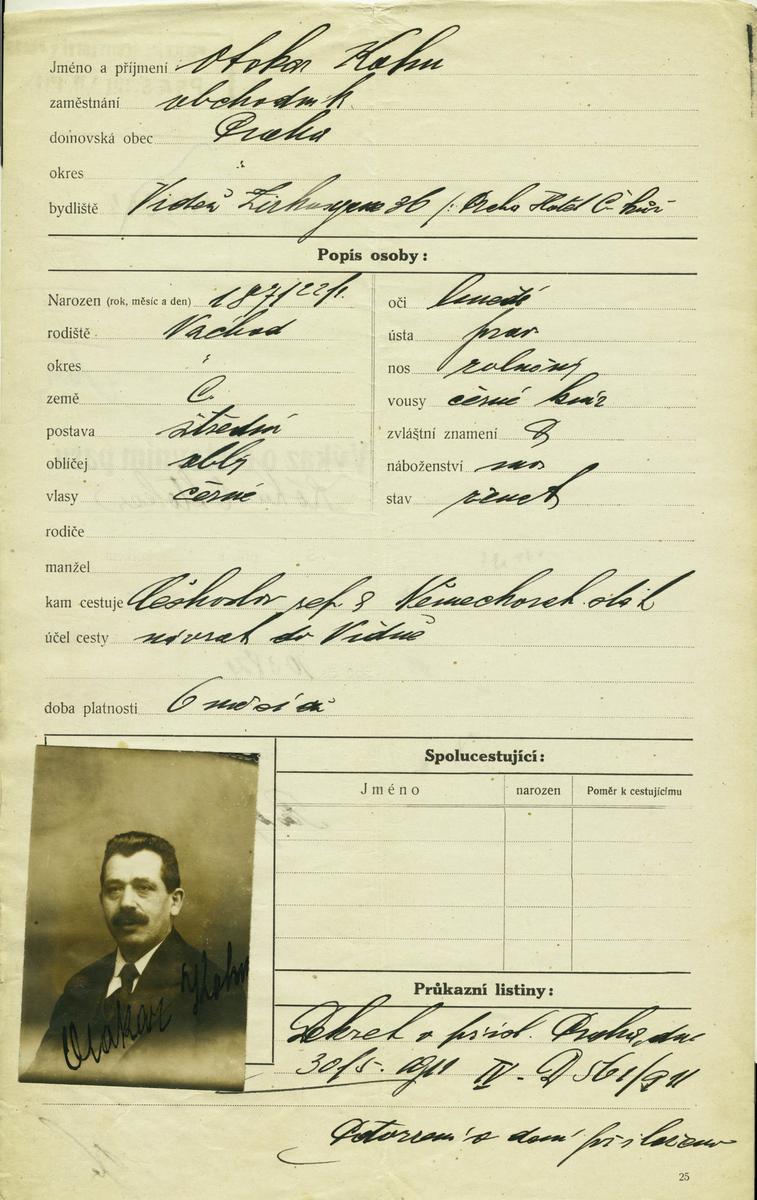 Jméno a příjmení Otokar Kohn
zaměstnání obchodník
domovská obec Praha
okres "
bydliště Vídeň 36 /: Praha Hotel
Popis osoby:
Narozen (rok, měsíc a den) 1871 22/1.
rodiště Náchod
okres "
země Č.
postava střední
obličej oblý
vlasy černé
oči hnědé
ústa prav
nos
vousy černé knír
zvláštní znamení
náboženství mos
stav ženat
rodiče
manžel
kam cestuje
účel cesty návrat do Vídně
doba platnosti 6 měsíců
Spolucestující:
Jméno narozen Poměr k cestujícímu
Otakar Kohn
Průkazní listiny:
Dekret o přísl. Praha, dne
30/5. 1911 IV - D 561/911
Potvrzení o dani přiloženo
25